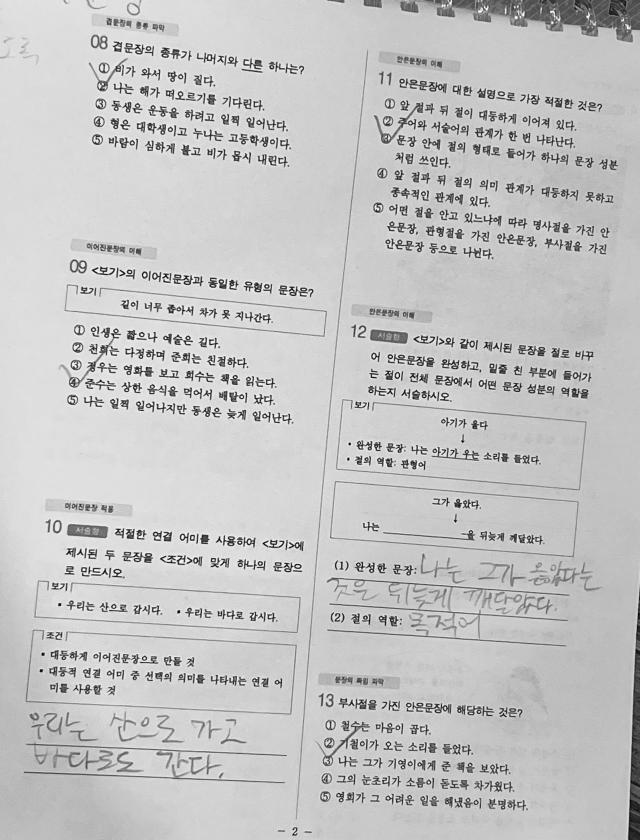 겹문장의 종류 파악
08 겹문장의 종류가 나머지와 다른 하나는?
① 비가 와서 땅이 질다.
② 나는 해가 떠오르기를 기다린다.
③ 동생은 운동을 하려고 일찍 일어난다.
④ 형은 대학생이고 누나는 고등학생이다.
⑤ 바람이 심하게 불고 비가 몹시 내린다.
이어진문장의 이해
09 <보기>의 이어진문장과 동일한 유형의 문장은?
보기
길이 너무 좁아서 차가 못 지나간다.
① 인생은 짧으나 예술은 길다.
② 천희는 다정하며 준희는 친절하다.
③ 경우는 영화를 보고 희수는 책을 읽는다.
④ 준수는 상한 음식을 먹어서 배탈이 났다.
⑤ 나는 일찍 일어나지만 동생은 늦게 일어난다.
이어진문장 적용
10 서술형 적절한 연결 어미를 사용하여 <보기>에
제시된 두 문장을 <조건>에 맞게 하나의 문장으
로 만드시오.
보기
• 우리는 산으로 갑시다. • 우리는 바다로 갑시다.
조건
• 대등하게 이어진문장으로 만들 것
• 대등적 연결 어미 중 선택의 의미를 나타내는 연결 어
미를 사용할 것
우리는 산으로 가고
바다로도 간다.
안은문장의 이해
11 안은문장에 대한 설명으로 가장 적절한 것은?
① 앞 절과 뒤 절이 대등하게 이어져 있다.
② 주어와 서술어의 관계가 한 번 나타난다.
③ 문장 안에 절의 형태로 들어가 하나의 문장 성분
처럼 쓰인다.
④ 앞 절과 뒤 절의 의미 관계가 대등하지 못하고
종속적인 관계에 있다.
⑤ 어떤 절을 안고 있느냐에 따라 명사절을 가진 안
은문장, 관형절을 가진 안은문장, 부사절을 가진
안은문장 등으로 나뉜다.
안은문장의 이해
12 서술형 <보기>와 같이 제시된 문장을 절로 바꾸
어 안은문장을 완성하고, 밑줄 친 부분에 들어가
는 절이 전체 문장에서 어떤 문장 성분의 역할을
하는지 서술하시오.
보기
아기가 울다
↓
• 완성한 문장: 나는 아기가 우는 소리를 들었다.
• 절의 역할: 관형어
그가 옳았다.
↓
나는 을 뒤늦게 깨달았다.
(1) 완성한 문장: 나는 그가 옳았다는
것을 뒤늦게 깨달았다.
(2) 절의 역할: 목적어
문장의 짜임 파악
13 부사절을 가진 안은문장에 해당하는 것은?
① 철수는 마음이 곱다.
② 기철이가 오는 소리를 들었다.
③ 나는 그가 기영이에게 준 책을 보았다.
④ 그의 눈초리가 소름이 돋도록 차가웠다.
⑤ 영희가 그 어려운 일을 해냈음이 분명하다.
– 2 –